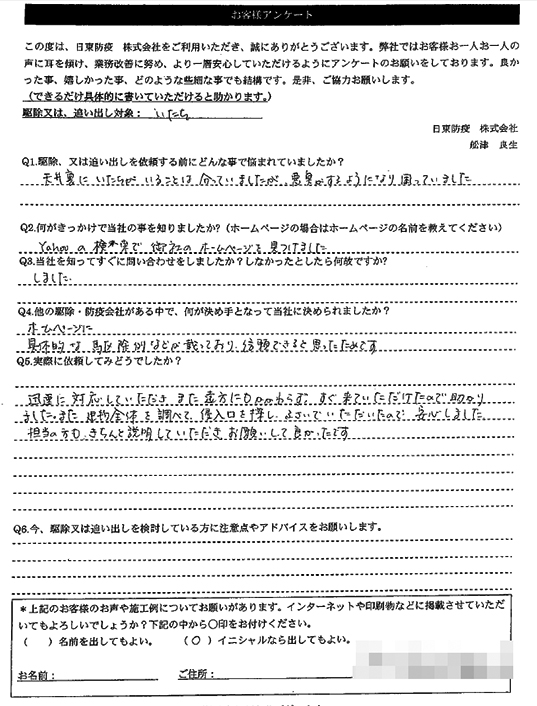 お客様アンケート
この度は、日東防疫 株式会社をご利用いただき、誠にありがとうございます。弊社ではお客様お一人お一人の
声に耳を傾け、業務改善に努め、より一層安心していただけるようにアンケートのお願いをしております。良か
った事、嬉しかった事、どのような些細な事でも結構です。是非、ご協力お願いします。
(できるだけ具体的に書いていただけると助かります。)
駆除又は、追い出し対象： いたち
日東防疫 株式会社
舩津 良生
Q1.駆除、又は追い出しを依頼する前にどんな事で悩まれていましたか？
天井裏に いたちが いることは 分っていましたが、悪臭がするようになり 困っていました
Q2.何がきっかけで当社の事を知りましたか?（ホームページの場合はホームページの名前を教えてください）
Yahoo の 検索で 御社の ホームページを 見つけました
Q3.当社を知ってすぐに問い合わせをしましたか？しなかったとしたら何故ですか？
しました.
Q4.他の駆除・防疫会社がある中で、何が決め手となって当社に決められましたか？
ホームページに
具体的な 駆除例などが 載っており、信頼できると思ったためです
Q5.実際に依頼してみどうでしたか？
迅速に 対応していただき また 遠方にもかかわらず、すぐ来ていただけたので 助かり
ました。また 建物全体を 調べて、侵入口を探し、ふさいで いただいたので 安心しました
担当の方も、きちんと説明していただき お願いして良かったです
Q6.今、駆除又は追い出しを検討している方に注意点やアドバイスをお願いします。
＊上記のお客様のお声や施工例についてお願いがあります。インターネットや印刷物などに掲載させていただ
いてもよろしいでしょうか？下記の中から〇印をお付けください。
（ ）名前を出してもよい。 （〇）イニシャルなら出してもよい。
お名前： ご住所：